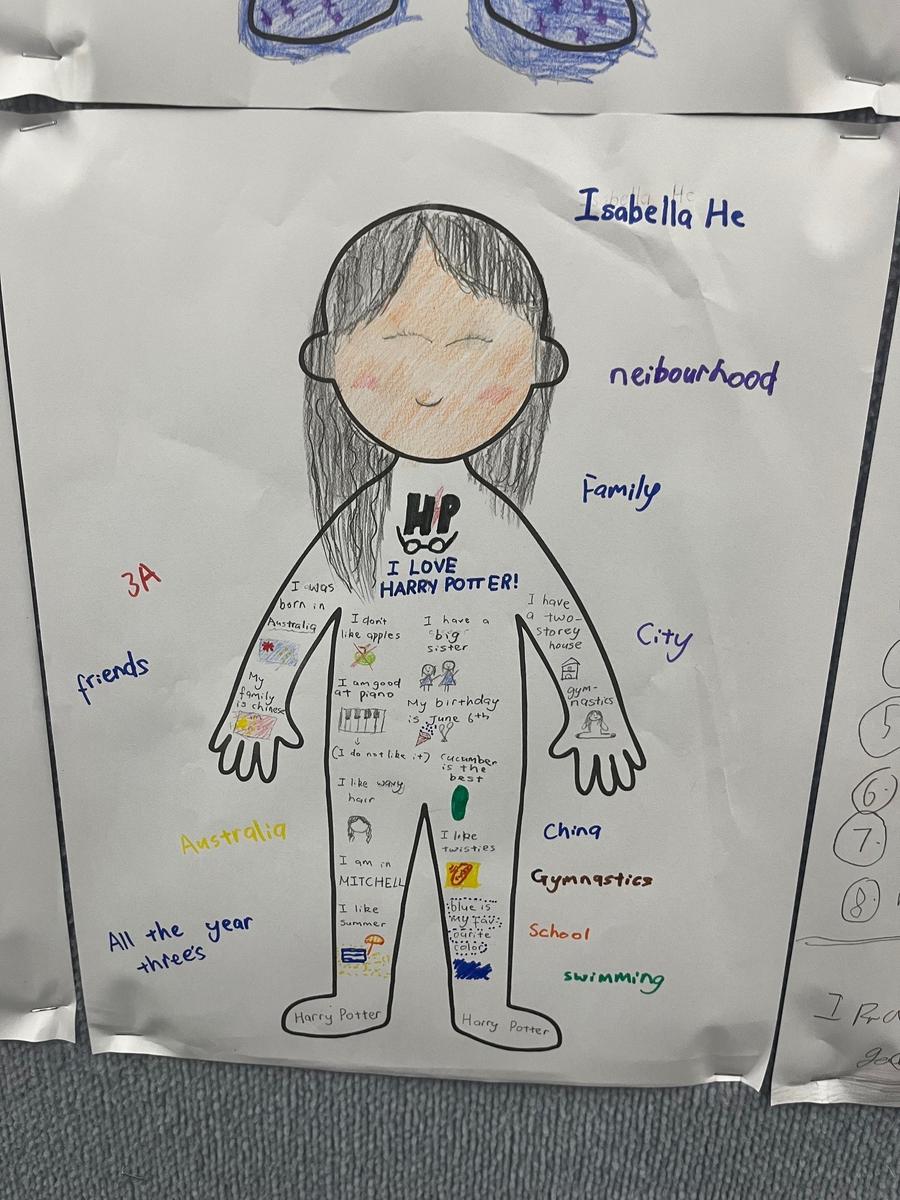 Isabella He
neibourhood
Family
HP
I LOVE
HARRY POTTER!
3A
friends
City
I was
born in
Australia
My
family
is chinese
I don't
like apples
I am good
at piano
(I do not like it)
I like wavy
hair
I am in
MITCHELL
I like
summer
I have a
"big"
sister
My birthday
is June 6th
cucumber
is the
best
I like
twisties
blue is
my fav-
ourite
color
I have
a two-
storey
house
gym-
nastics
Australia
All the year
three's
China
Gymnastics
School
swimming
Harry Potter
Harry Potter
5.
6.
7.
8.
I